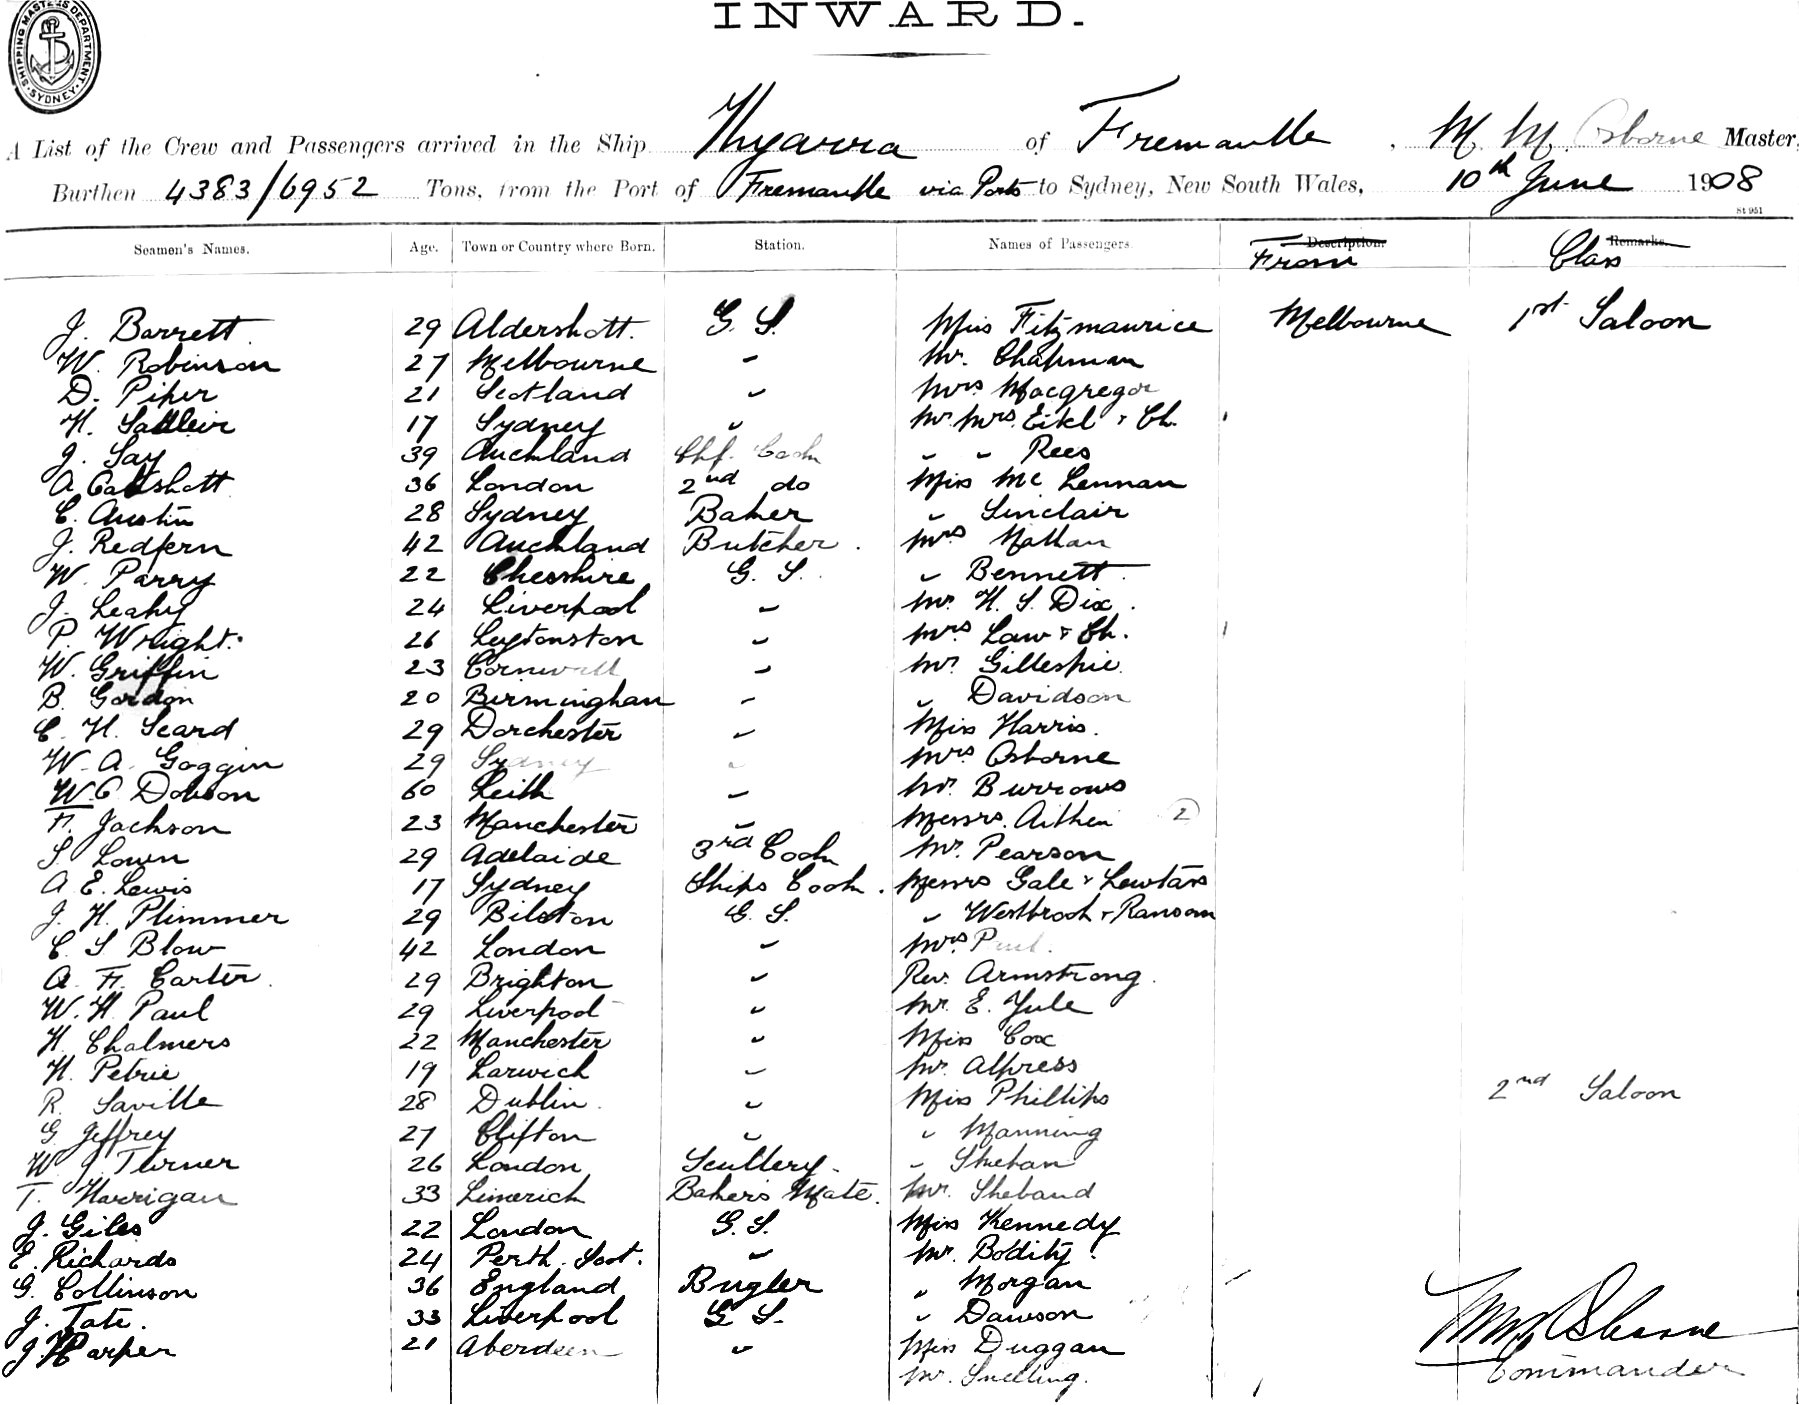 INWARD.
SHIPPING MASTERS DEPARTMENT. SYDNEY
A List of the Crew and Passengers arrived in the Ship Kyarra of Fremantle, M. M. Osborne Master,
Burthen 4383/6952 Tons, from the Port of Fremantle via Ports to Sydney, New South Wales, 10th June 1908
St 951
Seamen's Names. Age. Town or Country where Born. Station. Names of Passengers. Description. From Remarks. Class
J. Barrett 29 Aldershott. G. S. Miss Fitzmaurice Melbourne 1st Saloon
W. Robinson 27 Melbourne " Mr. Chapman
D. Piper 21 Scotland " Mrs Macgregor
H. Sadleir 17 Sydney " Mr. Mrs. Eikl & Ch.
J. Say 39 Auckland Chf. Cook " " Rees
A. Caltshott 36 London 2nd do Miss Mc Lennan
C. Austin 28 Sydney Baker " Sinclair
J. Redfern 42 Auckland Butcher. Mrs Nathan
W. Parry 22 Chesshire G. S. " Bennett
J. Leahy 24 Liverpool " Mr. H. S. Dix.
P. Wright. 26 Leytonston " Mrs Law & Ch.
W. Griffin 23 Cornwall " Mr. Gillespie
B. Gordon 20 Birmingham " " Davidson
C. H. Seard 29 Dorchester " Miss Harris.
W. A. Goggin 29 Sydney " Mrs Osborne
W. C. Dobson 60 Leith " Mr. Burrows
F. Jackson 23 Manchester " Messrs. Aitken 2
S. Lown 29 Adelaide 3rd Cook Mr. Pearson
A. E. Lewis 17 Sydney Ships Cook. Messrs Gale & Lewtas
J. H. Plimmer 29 Bilston G. S. " Westbrook & Ransom
C. S. Blow 42 London " Mrs. Paul.
A. F. Carter. 29 Brighton " Rev. Armstrong.
W. H. Paul 29 Liverpool " Mr. E. Yule
H. Chalmers 22 Manchester " Miss Cox
H. Petrie 19 Larwich " Mr. Allpress
R. Saville 28 Dublin. " Miss Phillips 2nd Saloon
G. Jeffrey 27 Clifton " " Manning
W. J. Turner 26 London Scullery. " Sheban
T. Harrigan 33 Limerick Baker's Mate. Mr. Sheband
J. Giles 22 London G. S. Miss Kennedy
E. Richards 24 Perth. Scot. " Mr. Boddy.
G. Collinson 36 England Bugler " Morgan
J. Tate. 33 Liverpool G. S. " Dawson
J. Harper 21 Aberdeen " Miss Duggan
Mr. Snelling.
M M Osborne
Commander